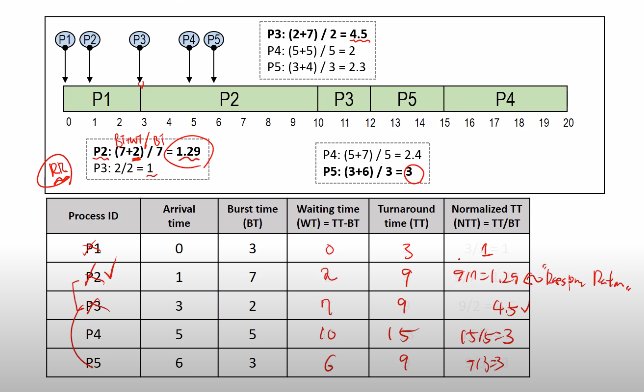 P3: (2+7) / 2 = 4.5
P4: (5+5) / 5 = 2
P5: (3+4) / 3 = 2.3
P1 P2 P3 P4 P5
P1 P2 P3 P5 P4
0 1 2 3 4 5 6 7 8 9 10 11 12 13 14 15 16 17 18 19 20
BT+WT / BT
P2: (7+2) / 7 = 1.29
P3: 2/2 = 1
RR
P4: (5+7) / 5 = 2.4
P5: (3+6) / 3 = 3
Process ID Arrival time Burst time (BT) Waiting time (WT) = TT-BT Turnaround time (TT) Normalized TT (NTT) = TT/BT
P1 0 3 0 3 1
P2 1 7 2 9 9/7=1.29
P3 3 2 7 9 4.5
P4 5 5 10 15 15/5=3
P5 6 3 6 9 9/3=3